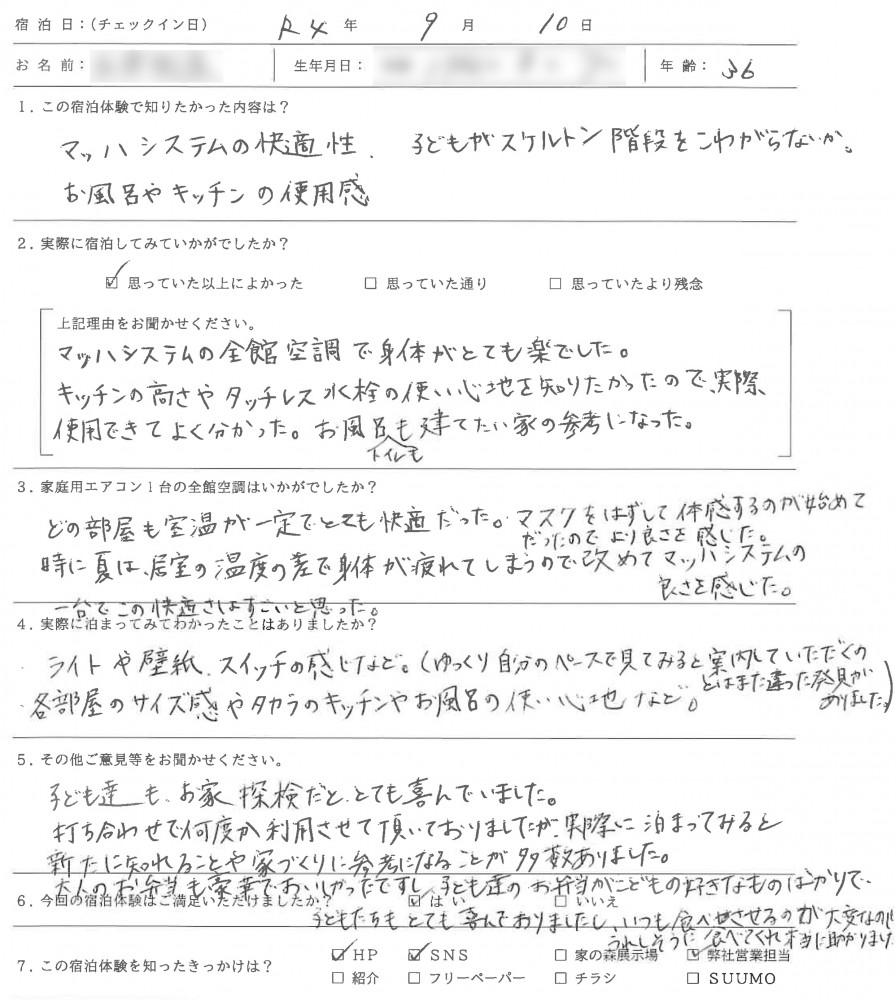 宿泊日:(チェックイン日) R4年 9月 10日
お名前: 生年月日: 年齢: 36
1. この宿泊体験で知りたかった内容は?
マッハシステムの快適性、子どもがスケルトン階段をこわがらないか。
お風呂やキッチンの使用感
2. 実際に宿泊してみていかがでしたか?
☑ 思っていた以上によかった □ 思っていた通り □ 思っていたより残念
上記理由をお聞かせください。
マッハシステムの全館空調で身体がとても楽でした。
キッチンの高さやタッチレス水栓の使い心地を知りたかったので、実際、
使用できてよく分かった。お風呂もトイレも建てたい家の参考になった。
3. 家庭用エアコン1台の全館空調はいかがでしたか?
どの部屋も室温が一定でとても快適だった。マスクをはずして体感するのが始めて
だったのでより良さを感じた。
時に夏は、居室の温度の差で身体が疲れてしまうので改めてマッハシステムの
良さを感じた。
一台でこの快適さはすごいと思った。
4. 実際に泊まってみてわかったことはありましたか?
ライトや壁紙、スイッチの感じなど。(ゆっくり自分のペースで見てみると案内していただくの
とはまた違った発見が
ありました。)
各部屋のサイズ感やタカラのキッチンやお風呂の使い心地など。
5. その他ご意見等をお聞かせください。
子ども達も、お家探検だと、とても喜んでいました。
打ち合わせで何度か利用させて頂いておりましたが、実際に泊まってみると
新たに知れることや家づくりに参考になることが多数ありました。
大人のお弁当も豪華でおいしかったですし、子ども達のお弁当がこどもの好きなものばかりで、
6. 今回の宿泊体験はご満足いただけましたか? ☑ はい □ いいえ
子どもたちもとても喜んでおりましたし、いつも食べさせるのが大変なのに
うれしそうに食べてくれ本当に助かりました
7. この宿泊体験を知ったきっかけは? ☑ HP ☑ SNS □ 家の森展示場 ☑ 弊社営業担当
□ 紹介 □ フリーペーパー □ チラシ □ SUUMO